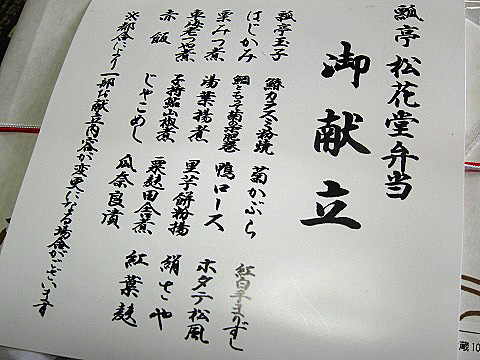 瓢亭 松花堂弁当
御献立
瓢亭玉子 鰆カラスミ粉焼 菊かぶら 紅白手まりずし
はじかみ 鴨ロース ホタテ松風
栗みつ煮 湯葉揚煮 里芋餅粉揚 絹さや
車海老つや煮 子持鮎山椒煮 栗麩田舎煮 紅葉麩
赤飯 じゃこめし 瓜奈良漬
※都合により一部お献立内容が変更になる場合がございます
蔵10